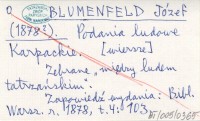 BLUMENFELD Józef
(1878?). Podania ludowe
Karpackie. [wiersze]
Zebrane "między ludem
tatrzańskim".
Zapowiedź wydania: Bibl.
Warsz. r. 1878, t. 4: 103
BJ/005/0365